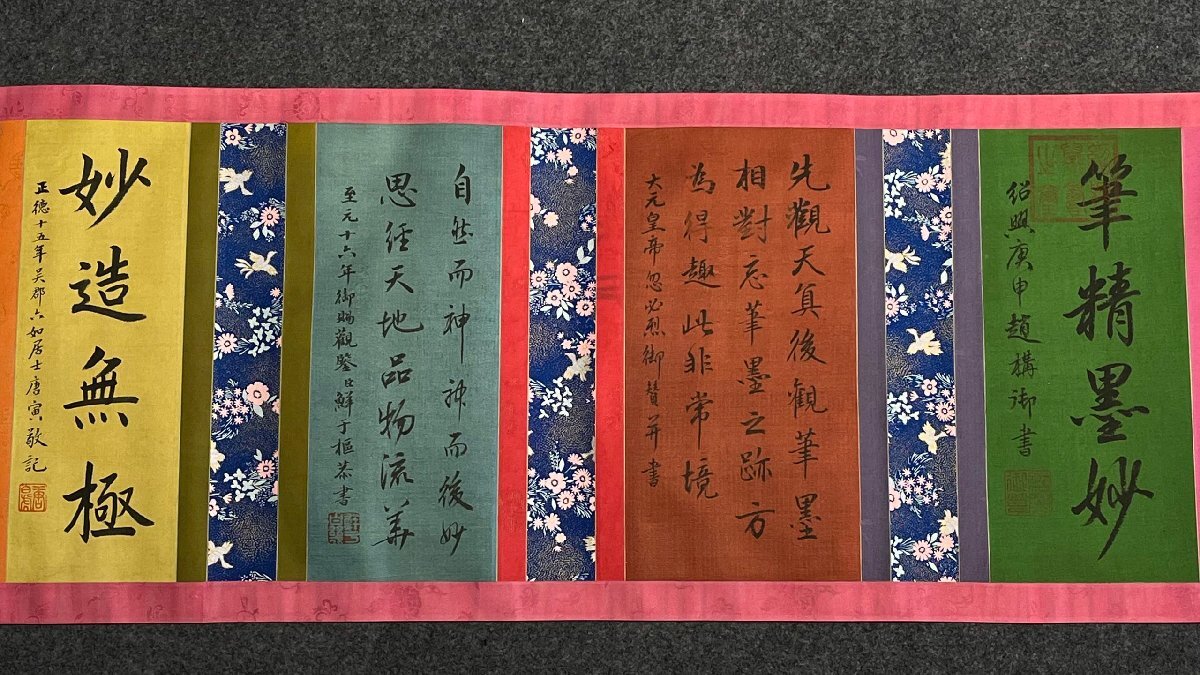 筆精墨妙
紹興庚申趙構御書
先觀天真後觀筆墨
相對忘筆墨之跡方
為得趣此非常境
大元皇帝忽必烈御贊并書
自然而神神而後妙
思經天地品物流美
至元十六年御賜觀鑒臣鮮于樞恭書
妙造無極
正德十五年吴郡六如居士唐寅敬記